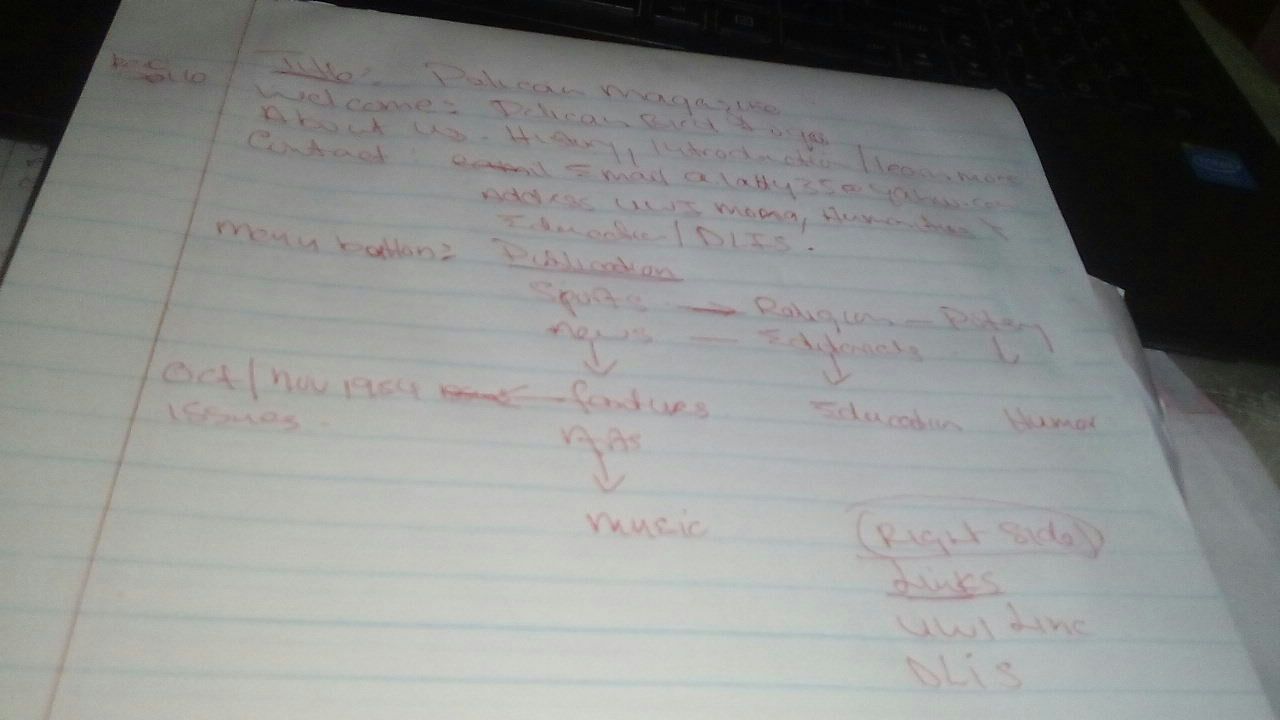 Title: Pelican magazine
Welcome: Pelican Bird & logo
About us - History, Introduction / learn more
Contact Email alatty35@yahoo.com
Address UWI mona, Humanities &
Education / DLIS.
menu button: Publication
Sports → Religion — 
news — Editorials
Oct / Nov 1984 ← features Education Humor
issues.
Arts
music
(Right Side)
Links
UWI Linc
DLiS